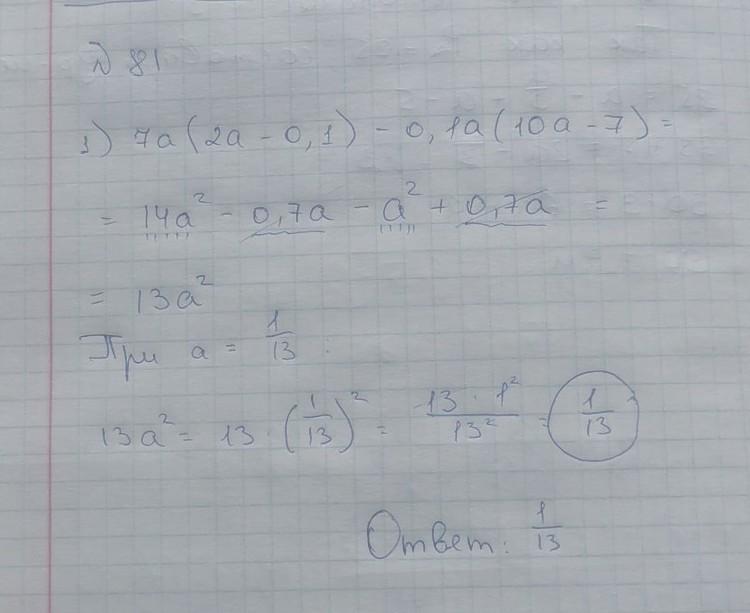 № 81
1) 7a(2a - 0,1) - 0,1a(10a - 7) =
= 14a² - 0,7a - a² + 0,7a =
= 13a²
При a = 1/13 :
13a² = 13 · (1/13)² = 13 · 1²/13² = 1/13
Ответ: 1/13